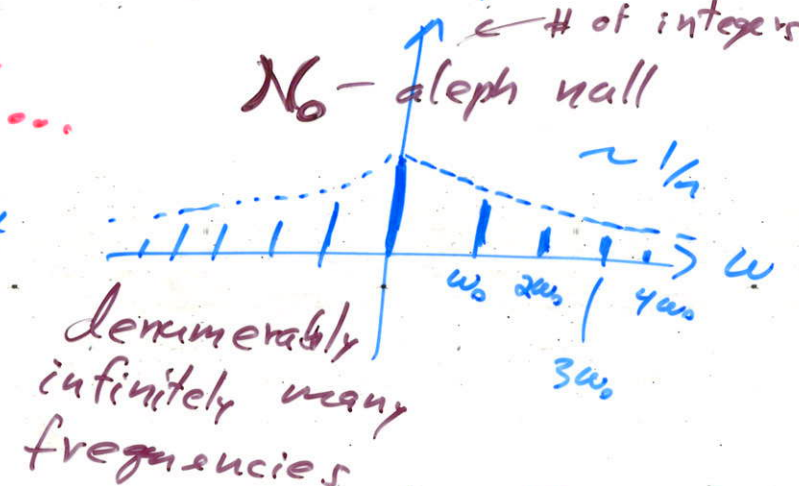 ← # of integers
ℵ₀ - aleph null
...
~ 1/n
ω
ω₀ 2ω₀ 4ω₀
3ω₀
denumerably
infinitely many
frequencies